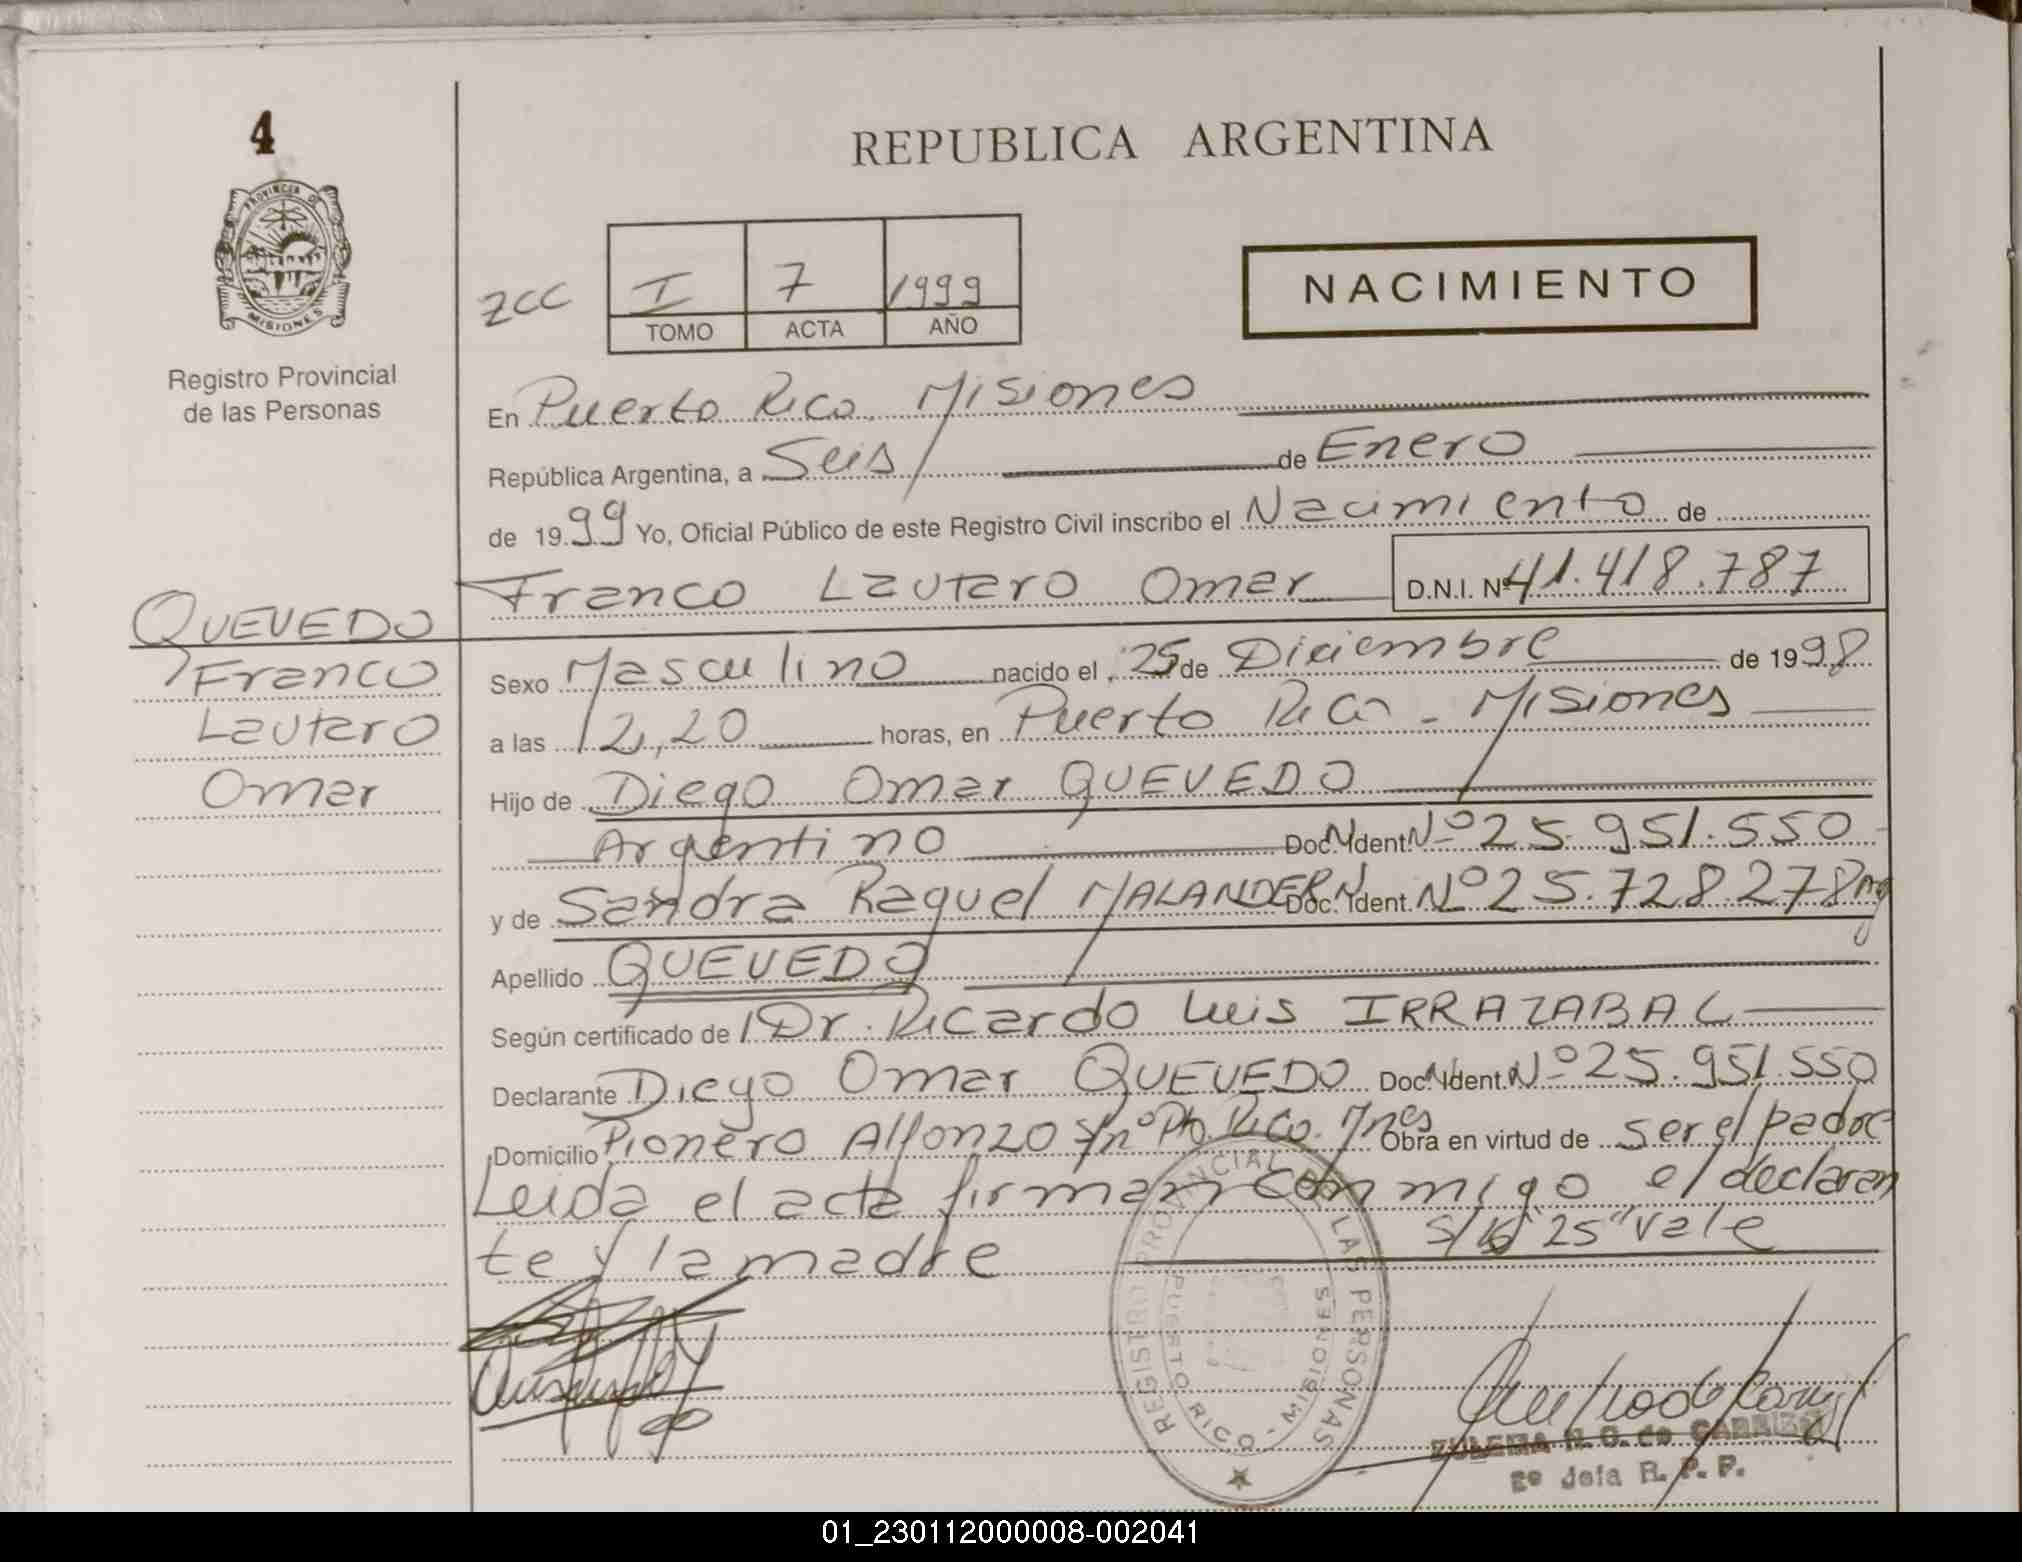 4
PROVINCIA DE
MISIONES
Registro Provincial
de las Personas
REPUBLICA ARGENTINA
ZCC
I 7 1999
TOMO ACTA AÑO
NACIMIENTO
En Puerto Rico, Misiones
República Argentina, a Seis de Enero
de 1999 Yo, Oficial Público de este Registro Civil inscribo el Nacimiento de
Franco Lautaro Omar D.N.I. Nº 41.418.787
QUEVEDO
Franco
Lautaro
Omar
Sexo Masculino nacido el 25 de Diciembre de 1998
a las 12,20 horas, en Puerto Rico - Misiones
Hijo de Diego Omar QUEVEDO
Argentino Doc. N. Ident. Nº 25.951.550
y de Sandra Raquel MALANDER Doc. N. Ident. Nº 25.728.278 Arg
Apellido QUEVEDO
Según certificado de Dr. Ricardo Luis IRRAZABAL
Declarante Diego Omar QUEVEDO Doc. N. Ident. Nº 25.951.550
Domicilio Pionero Alfonzo s/nº Pto. Rico. Mnes Obra en virtud de ser el padre
Leida el acta firman conmigo el declaran
te y la madre S/b "25" vale
REGISTRO PROVINCIAL DE LAS PERSONAS
PUERTO RICO - MISIONES
ZULEMA N. G. de CARRIZO
2º Jefa R. P. P.
01_230112000008-002041